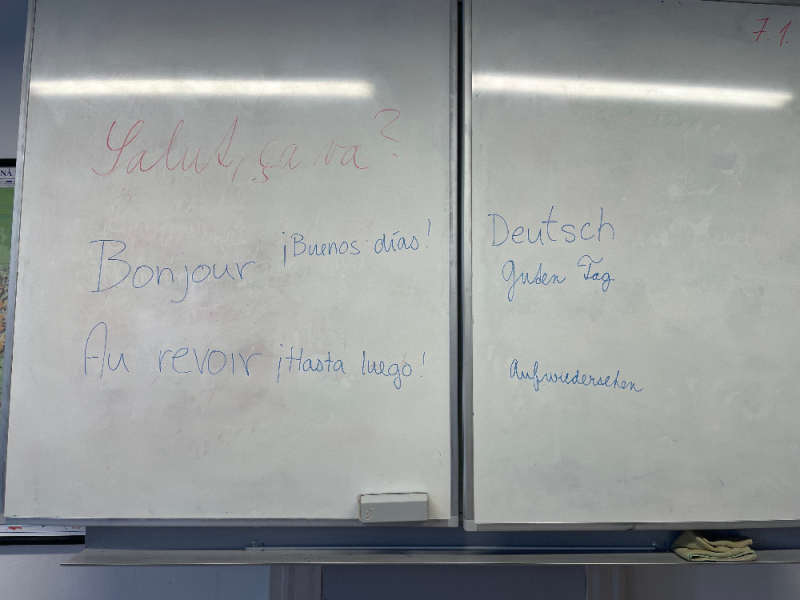 7.1.
Salut, ça va?
Bonjour ¡Buenos días!
Au revoir ¡Hasta luego!
Deutsch
Guten Tag
Aufwiedersehen
NÁ